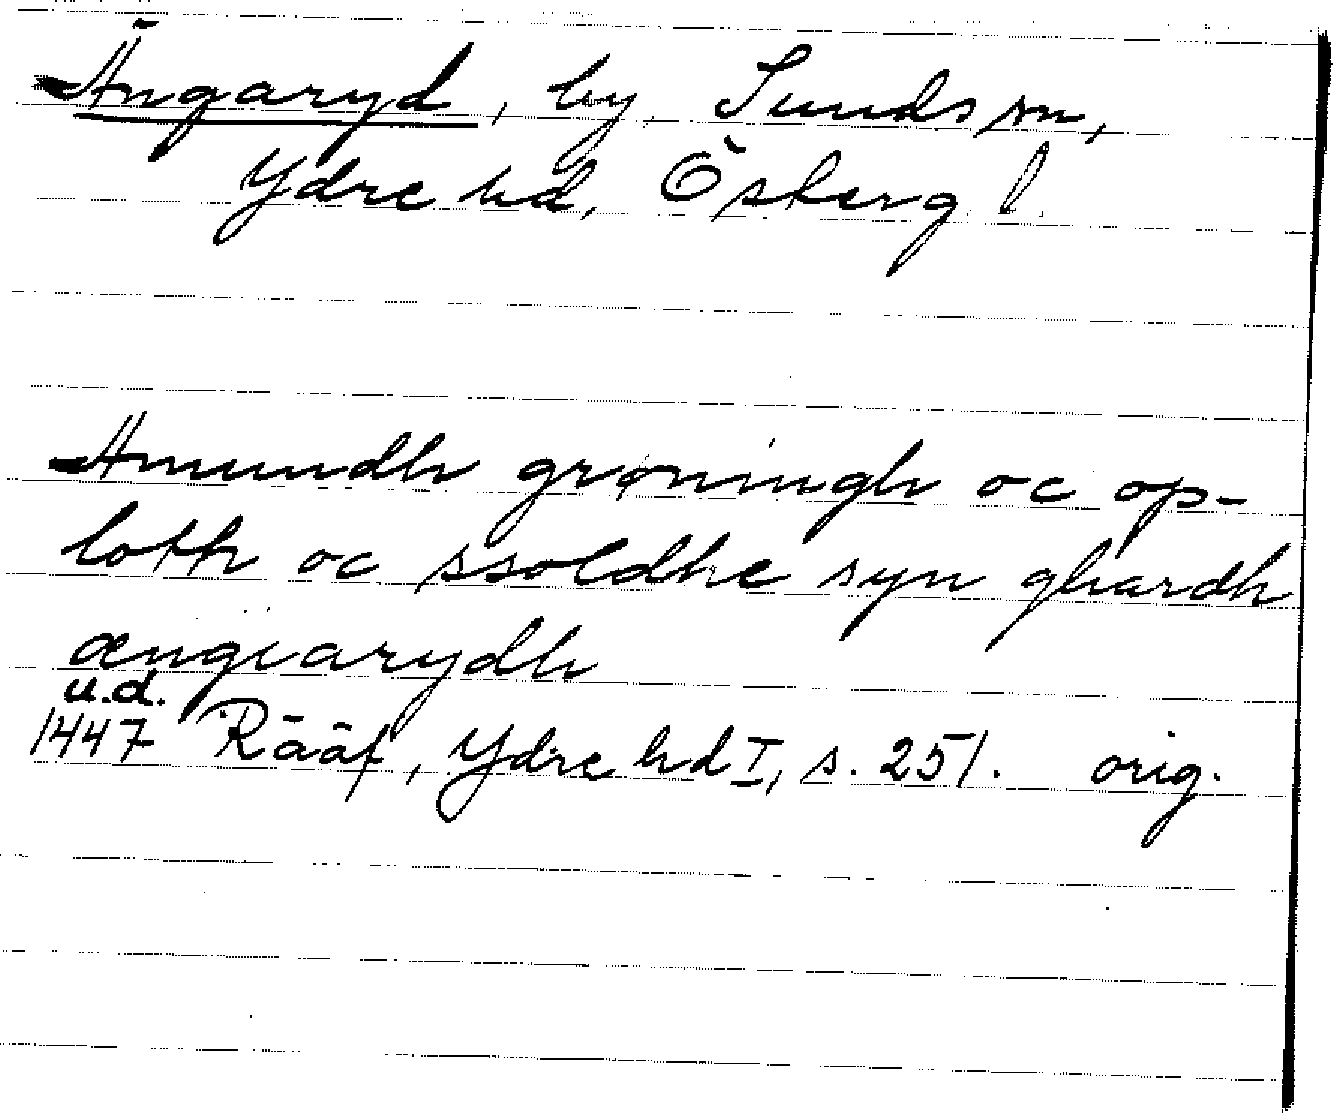 Ängaryd, by, Sunds sn,
Ydre hd, Österg l.
Amundh grøningh oc op-
lotth oc ssoldhe syn ghardh
ængiarydh
u.d.
1447 Rääf, Ydre hd I, s. 251. orig.